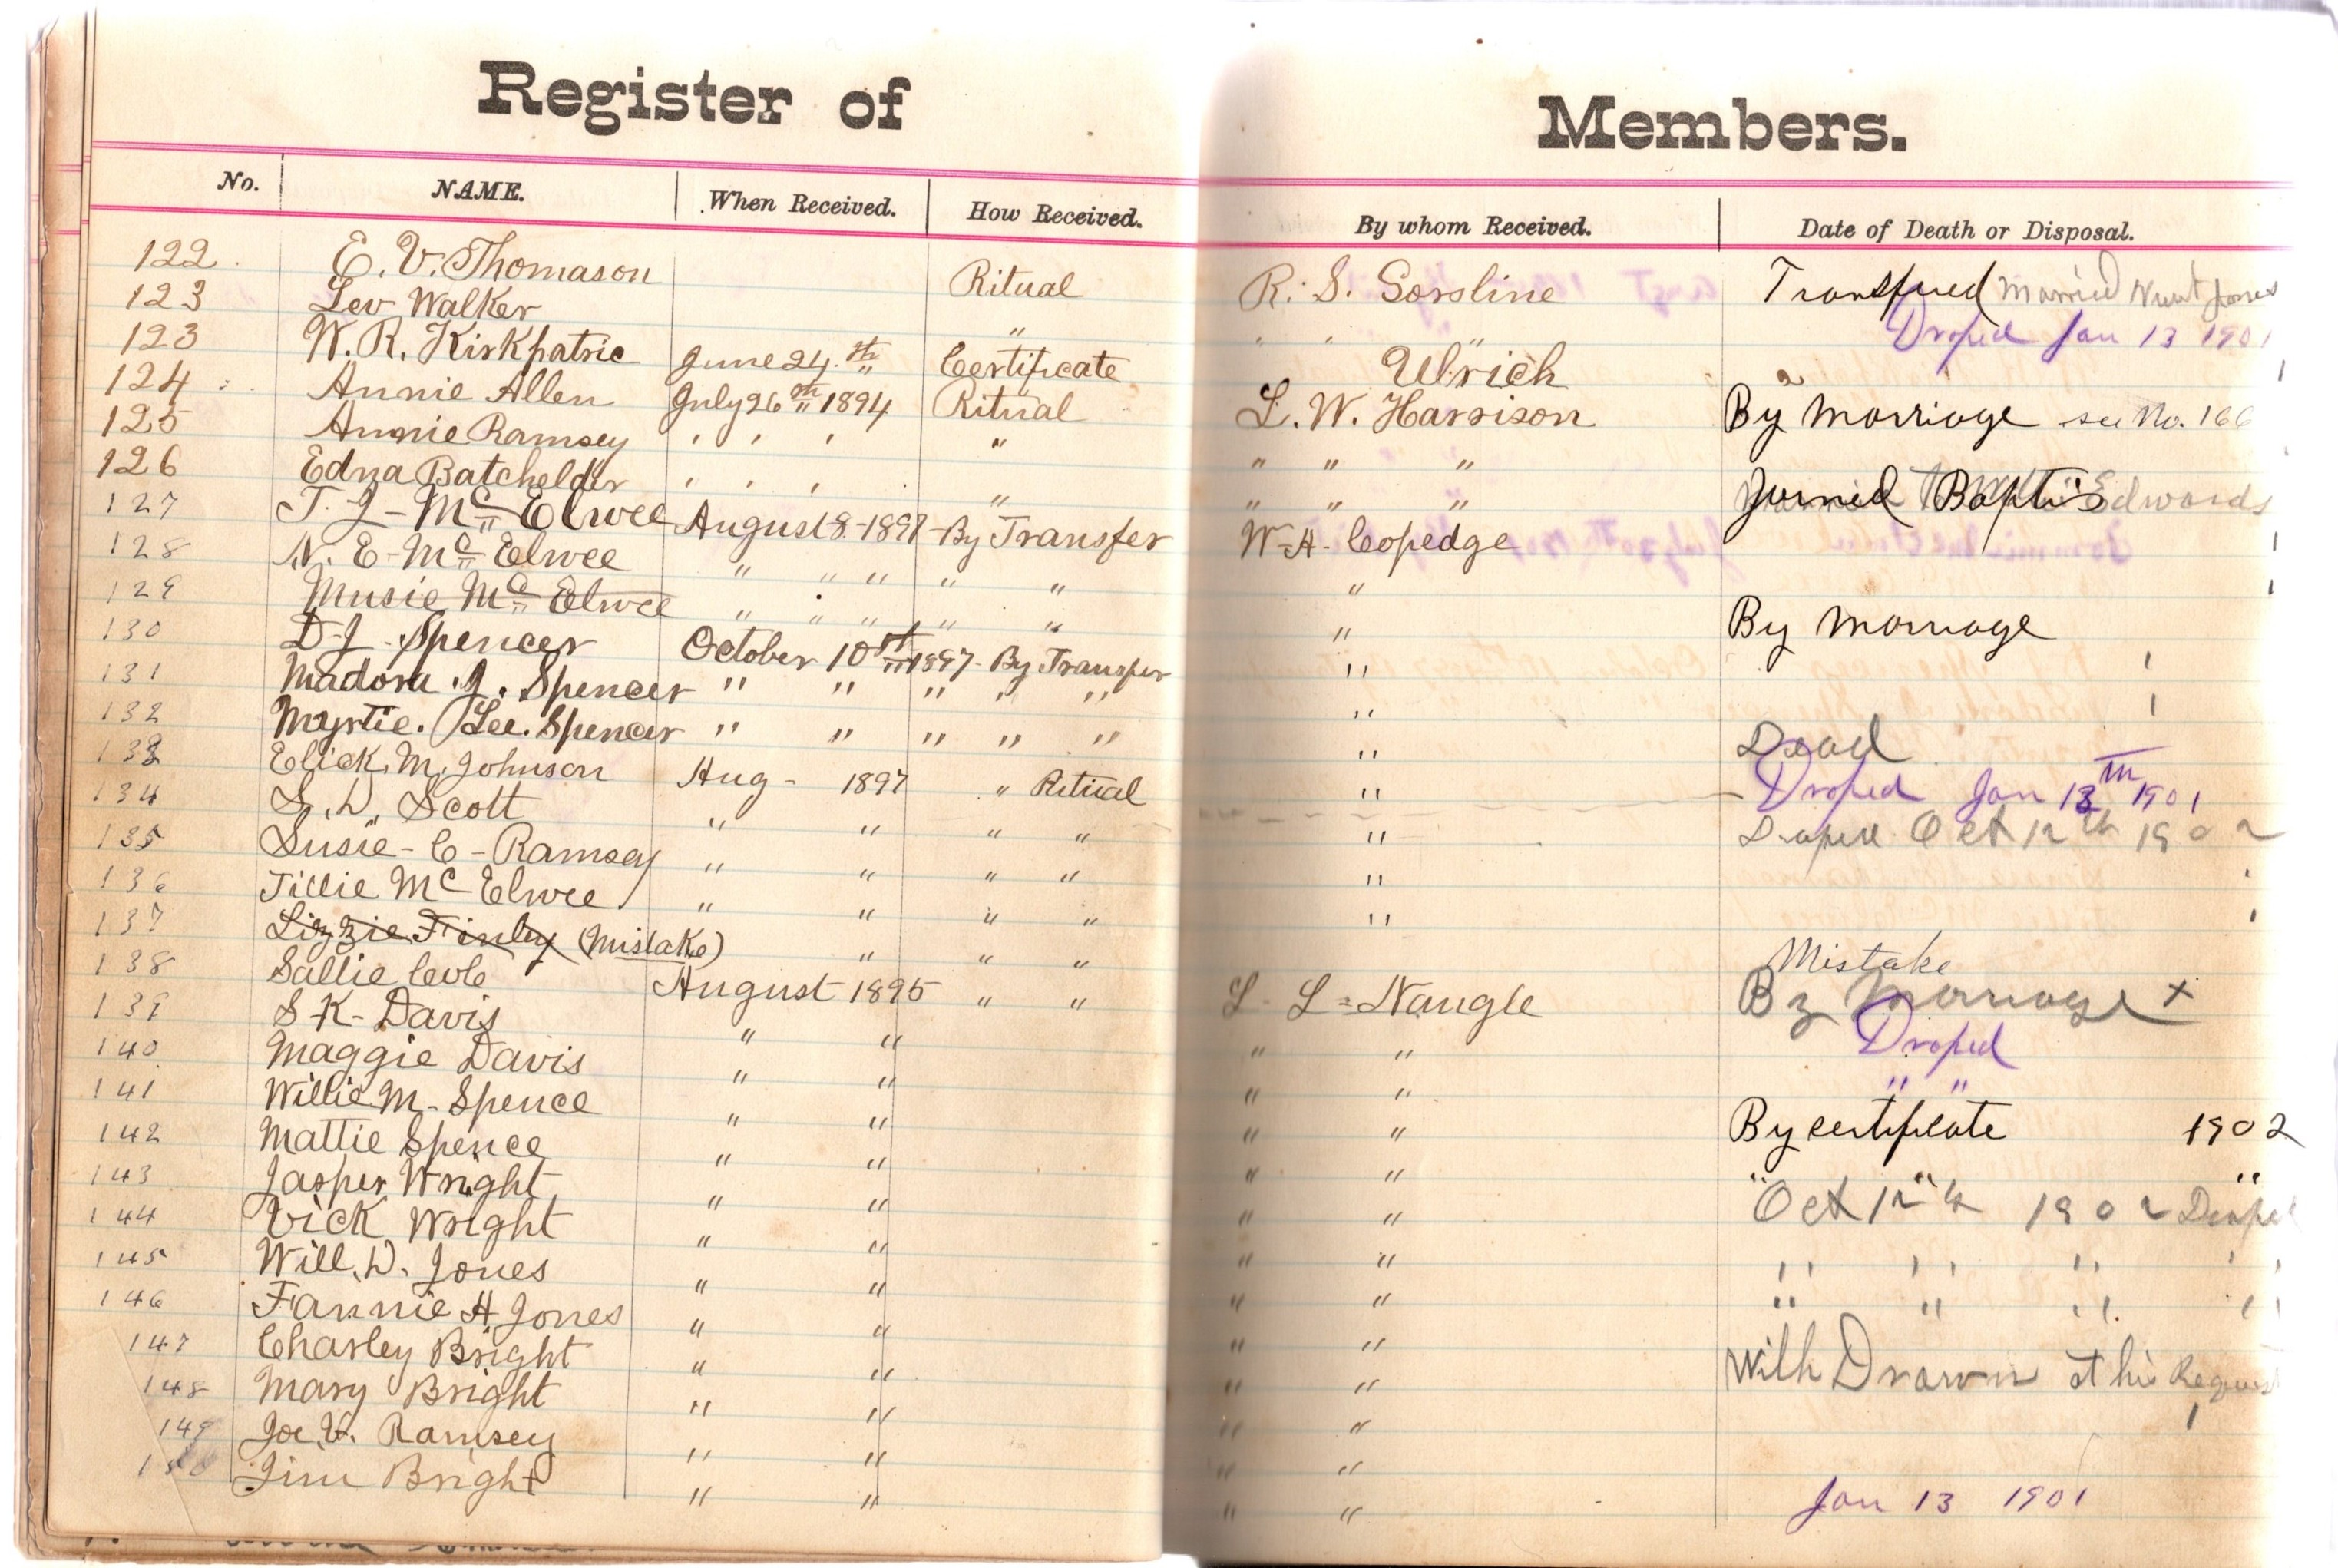 Register of Members.
No. NAME. When Received. How Received. By whom Received. Date of Death or Disposal.
122. E. V. Thomason Ritual R. S. Gorsline Transfured Married Newt Jones
123 Lev Walker " " " " Droped Jan 13 1901
123 W. R. Kirkpatric June 24th " Certificate Ulrich
124 Annie Allen July 26th " 1894 Ritual L. W. Harrison By Marriage see No. 166
125 Annie Ramsey " " " " " " "
126 Edna Batchelder " " " " " " " Joined Baptis Edwards
127 T. J - Mc Elwee August 8-1897 - By Transfer W-A- Copedge
128 N. E - Mc Elwee " " " " " "
129 Musie Mc Elwee " " " " " " By Marriage
130 D-J- Spencer October 10th 1897- By Transfer "
131 Madora. J. Spencer " " " " " "
132 Myrtie. Lee. Spencer " " " " " " Dead
133 Elick. M. Johnson Aug - 1897 " Ritual " Droped Jan 13th 1901
134 S. D. Scott " " " " " Droped Oct 12th 1902
135 Susie - C - Ramsey " " " " "
136 Tillie Mc Elwee " " " " "
137 Lizzie Finley (Mistake) " " " Mistake
138 Sallie Cole August 1895 " " L- L = Nangle By Marriage x
139 S-K- Davis " " " " Droped
140 Maggie Davis " " " " " "
141 Willie M- Spence " " " " By certificate 1902
142 Mattie Spence " " " " " " "
143 Jasper Wright " " " " Oct 12th 1902 Droped
144 Vick Wright " " " " " " " "
145 Will. D. Jones " " " " " " " "
146 Fannie H. Jones " " " "
147 Charley Bright " " " " With Drawn at his Request
148 Mary Bright " " " "
149 Joe. V. Ramsey " " " "
150 Jim Bright " " " " Jan 13 1901